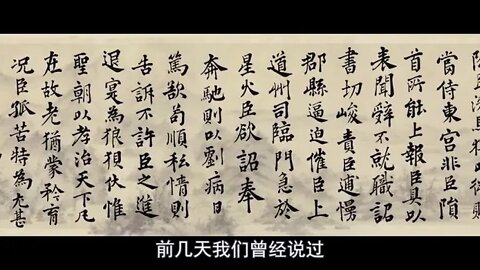 當侍東宮非臣隕
首所能上報臣具以
表聞辭不就職詔
書切峻責臣逋慢
郡縣逼迫催臣上
道州司臨門急於
星火臣欲詔奉
奔馳則以劉病日
篤欲苟順私情則
告訴不許臣之進
退寔為狼狽伏惟
聖朝以孝治天下凡
在故老猶蒙矜育
況臣孤苦特為尤甚
前几天我们曾经说过